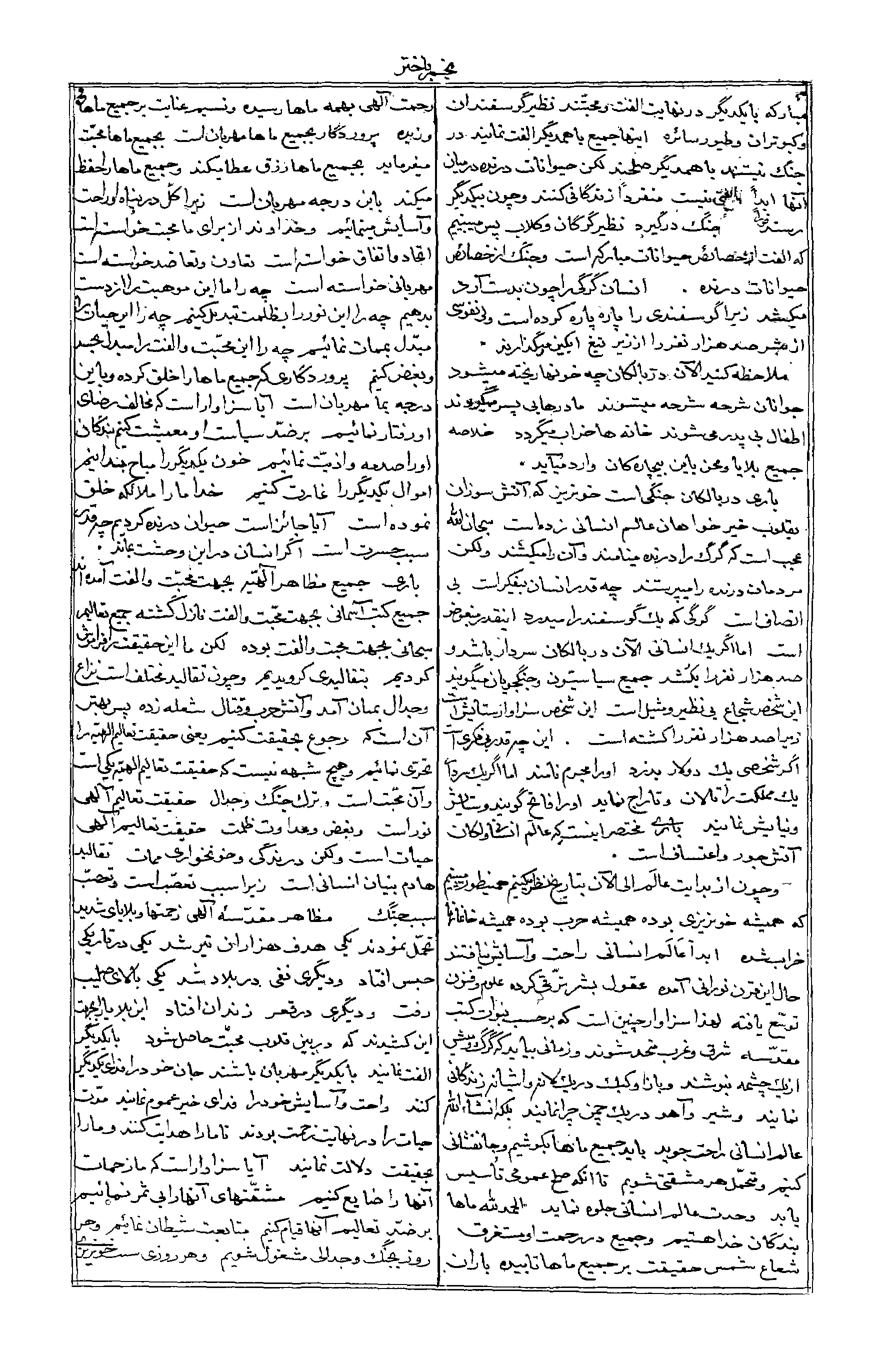 نجم باختر
مبارکه با یکدیگر در نهایت الفت و محبتند نظیر گوسفندان
و کبوتران و طیور سائره اینها جمیع با همدیگر الفت نمایند در
جنگ نیستند با همدیگر صلحند لکن حیوانات درنده در میان
آنها ابداً الفتی نیست منفرداً زندگانی کنند و چون بیکدیگر
رسند فوراً جنگ درگیرد نظیر گرگان و کلاب پس میبینیم
که الفت از خصائص حیوانات مبارکه است و جنگ از خصائص
حیوانات درنده . انسان گرگی را چون بدست آرد
میکشد زیرا گوسفندی را پاره پاره کرده است ولی نفوسی
از بشر صد هزار نفر را از زیر تیغ میگذارند .
ملاحظه کنید الآن در بالکان چه خونها ریخته میشود
جوانان شرحه شرحه میشوند مادرهایی پسر میگردند
اطفال بی پدر می شوند خانه ها خراب میگردد خلاصه
جمیع بلایا و محن باین بیچاره کان وارد میآید .
باری در بالکان جنگی است خونریز که آتش سوزان
بقلوب خیر خواهان عالم انسانی زده است سبحان الله
عجب است که گرگ را درنده مینامند و آن را میکشند ولکن
مردمان درنده را میپرستند چه قدر انسان بیفکر است بی
انصاف است گرگی که یک گوسفند را میدرد اینقدر مبغوض
است اما اگر یک انسانی الآن در بالکان سردار باشد و
صد هزار نفر را بکشد جمیع سیاسیون و جنگجویان میگویند
این شخص شجاع بی نظیر و مثیل است این شخص سزاوار ستایش است
زیرا صد هزار نفر را کشته است . این چه قدر بی فکری است
اگر شخصی یک دولار بدزد او را مجرم نامند اما اگر یک سردار
یک مملکت را تالان و تاراج نماید او را فاتح گویند و ستایش
و نیایش نمایند باری مختصر اینست که عالم انسانی و بالکان
آتش جور و اعتساف است .
و چون از بدایت عالم الی الآن بتاریخ نظر میکنیم همینطور میبینیم
که همیشه خونریزی بوده همیشه حرب بوده همیشه خانمانها
خراب شده ابداً عالم انسانی راحت و آسایش نیافتند
حال این قرن نورانی آمده عقول بشر ترقی کرده علوم و فنون
توسع یافته لهذا سزاوار چنین است که برحسب نبوات کتب
مقدسه شرق و غرب متحد شوند و زمانی بیاید که گرگ و میش
از یک چشمه بنوشند و باز و کبک در یک لانه و آشیانه زندگانی
نمایند و شیر و آهو در یک چمن چرا نمایند بلکه انشاء الله
عالم انسانی راحت جوید باید جمیع ماها بکوشیم و جانفشانی
کنیم و تحمل هر مشقتی شویم تا آنکه صلح عمومی تأسیس
یابد وحدت عالم انسانی جلوه نماید الحمد لله ماها
بندگان خدا هستیم و جمیع در رحمت او مستغرق
شعاع شمس حقیقت بر جمیع ماها تابیده باران
رحمت الهی بهمه ماها رسیده و نسیم عنایت بر جمیع ماها
وزیده پروردگار بجمیع ماها مهربان است بجمیع ماها محبت
میفرماید بجمیع ماها رزق عطا میکند و جمیع ماها را حفظ
میکند باین درجه مهربان است زیرا کل در پناه او راحت
و آسایش مینمائیم و خداوند از برای ما محبت خواسته است
اتحاد و اتفاق خواسته است تعاون و تعاضد خواسته است
مهربانی خواسته است چه را ما این موهبت را از دست
بدهیم چه را این نور را بظلمت تبدیل کنیم چه را این حیات را
مبدل بممات نمائیم چه را این محبت و الفت را مبدل بحسد
و بغض کنیم پروردگاری که جمیع ماها را خلق کرده و باین
درجه بما مهربان است آیا سزاوار است که مخالف رضای
او رفتار نمائیم بر ضد سیاست او معیشت کنیم بندگان
او را صدمه و اذیت نمائیم خون یکدیگر را مباح بدانیم
اموال یکدیگر را غارت کنیم خدا ما را ملائکه خلق
نموده است آیا جائز است حیوان درنده گردیم چه قدر
سبب حسرت است اگر انسان در این وحشت بماند .
باری جمیع مظاهر الهیه بجهت محبت و الفت آمده اند
جمیع کتب آسمانی بجهت محبت و الفت نازل گشته جمیع تعالیم
سبحانی بجهت محبت و الفت بوده لکن ما این حقیقت را فراموش
کردیم بتقالیدی گرویدیم و چون تقالید مختلف است نزاع
و جدال بمیان آمد و آتش حرب و قتال شعله زده پس بهتر
آن است که رجوع بحقیقت کنیم یعنی حقیقت تعالیم الهیه را
تحری نمائیم و هیچ شبهه نیست که حقیقت تعالیم الهیه یکی است
و آن محبت است و ترک جنگ و جدال حقیقت تعالیم الهی
نور است و بغض و عداوت ظلمت حقیقت تعالیم الهی
حیات است ولکن درندگی و خونخواری ممات تقالید
هادم بنیان انسانی است زیرا سبب تعصب است و تعصب
سبب جنگ مظاهر مقدسه الهی زحمتها و بلایای شدید
تحمل نمودند یکی هدف هزاران تیر شد یکی در تاریکی
حبس افتاد و دیگری نفی در بلاد شد یکی بالای صلیب
رفت و دیگری در قعر زندان افتاد این بلایا را بجهت
این کشیدند که در بین قلوب محبت حاصل شود با یکدیگر
الفت نمایند با یکدیگر مهربان باشند جان خود را فدای یکدیگر
کنند راحت و آسایش خود را فدای خیر عموم نمایند مدت
حیات را در نهایت زحمت بودند تا ما را هدایت کنند و ما را
بحقیقت دلالت نمایند آیا سزاوار است که ما زحمات
آنها را ضایع کنیم مشقتهای آنها را بی ثمر نمائیم
بر ضد تعالیم آنها قیام کنیم متابعت شیطان نمائیم و هر
روز بجنگ و جدالی مشغول شویم و هر روزی سبب خونریزی